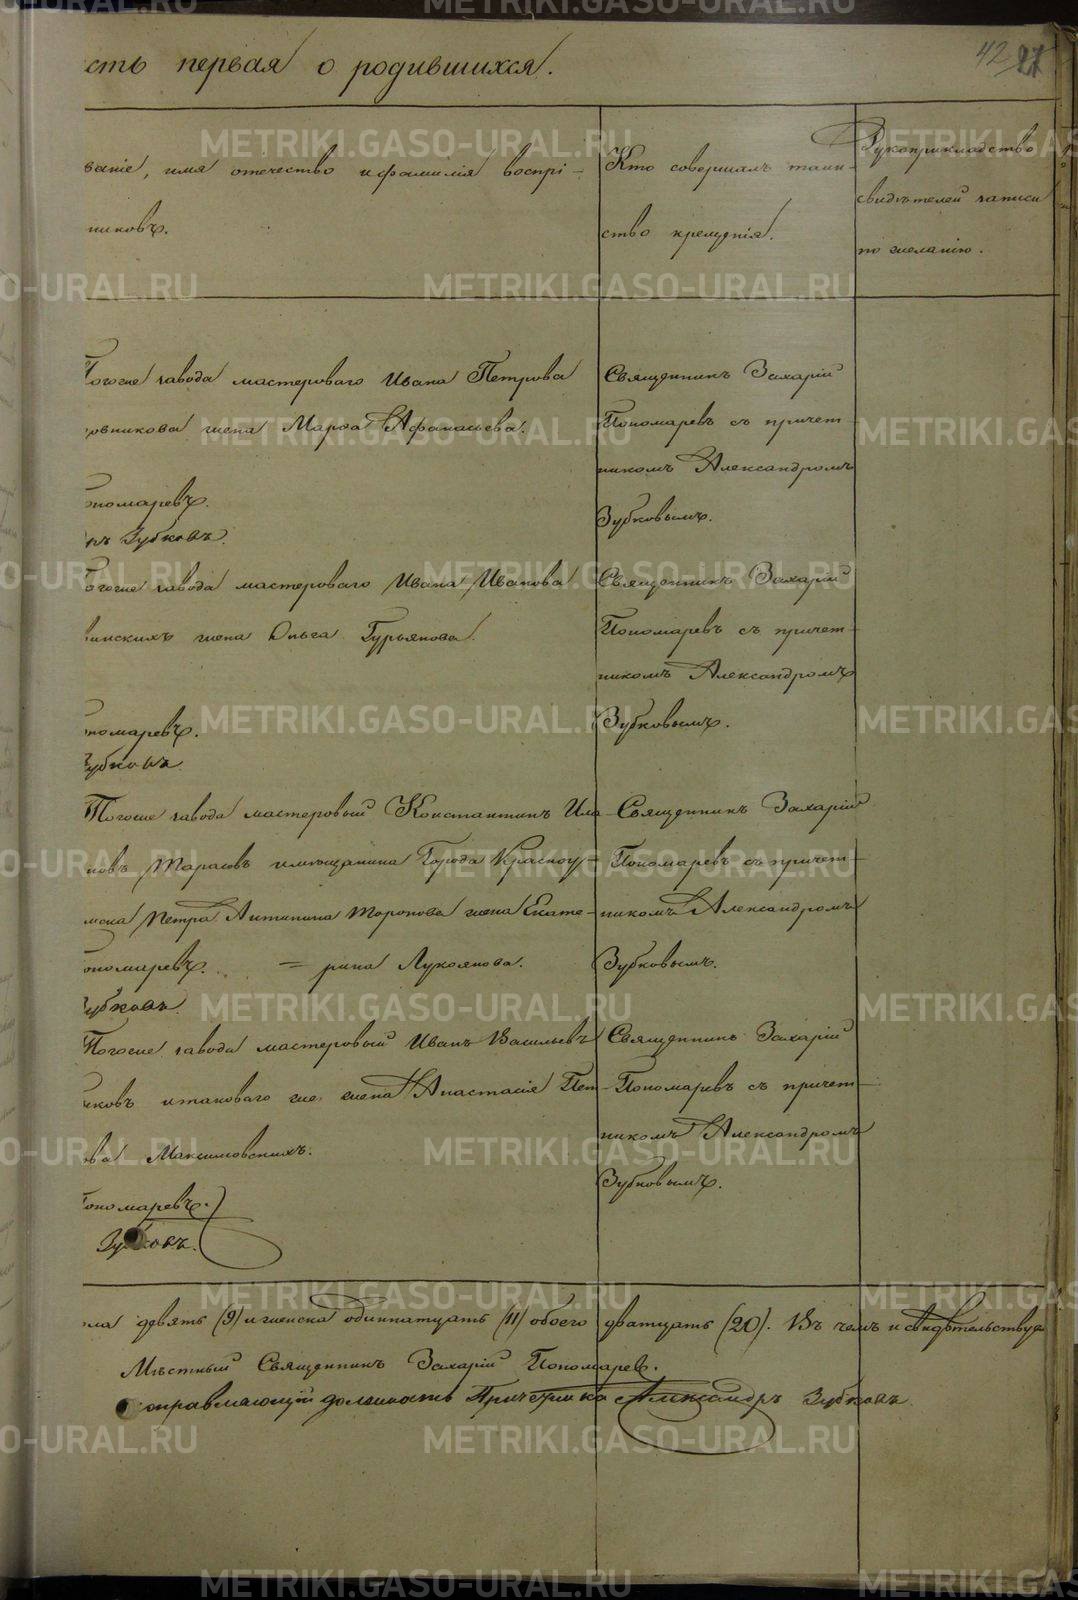 сть первая о родившихся.
42 27
званіе, имя отечество и фамилія воспрі-
никовъ.
Кто совершалъ таин-
ство крещенія.
Рукоприкладство
свидѣтелей записи
по желанію.
Тогоже завода мастероваго Ивана Петрова
овникова жена Марѳа Афанасьева.
ономаревъ.
ръ Зубковъ.
Священникъ Захарій
Пономаревъ съ причет-
никомъ Александромъ
Зубковымъ.
Тогоже завода мастероваго Ивана Иванова
жена Ольга Гурьянова.
номаревъ.
Зубковъ.
Священникъ Захарій
Пономаревъ съ причет-
никомъ Александромъ
Зубковымъ.
Тогоже завода мастеровый Константинъ
новъ Тарасовъ и мѣщанина Города Красноу-
Петра Антипина Торопова жена Екате-
ономаревъ. = рина Лукоянова.
Зубковъ.
Священникъ Захарій
Пономаревъ съ причет-
никомъ Александромъ
Зубковымъ.
Тогоже завода мастеровый Иванъ Васильевъ
иковъ и таковаго же жена Анастасія Пет-
ова Максимовскихъ.
Пономаревъ.
Зубковъ.
Священникъ Захарій
Пономаревъ съ причет-
никомъ Александромъ
Зубковымъ.
девять (9) и женска одиннатцать (11) обоего дватцать (20). Въ чемъ и свидѣтельствуе
Мѣстный Священникъ Захарій Пономарев.
справляющій должность Причетника Александръ Зубковъ.
METRIKI.GASO-URAL.RU